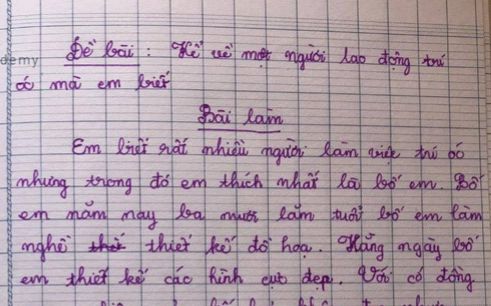 demy
Đề bài : Kể về một người lao động trí
óc mà em biết
Bài làm
Em biết rất nhiều người làm việc trí óc
nhưng trong đó em thích nhất là bố em. Bố
em năm nay ba mươi lăm tuổi bố em làm
nghề thiết kế đồ hoạ. Hằng ngày bố
em thiết kế các hình cụt đẹp. Với có động